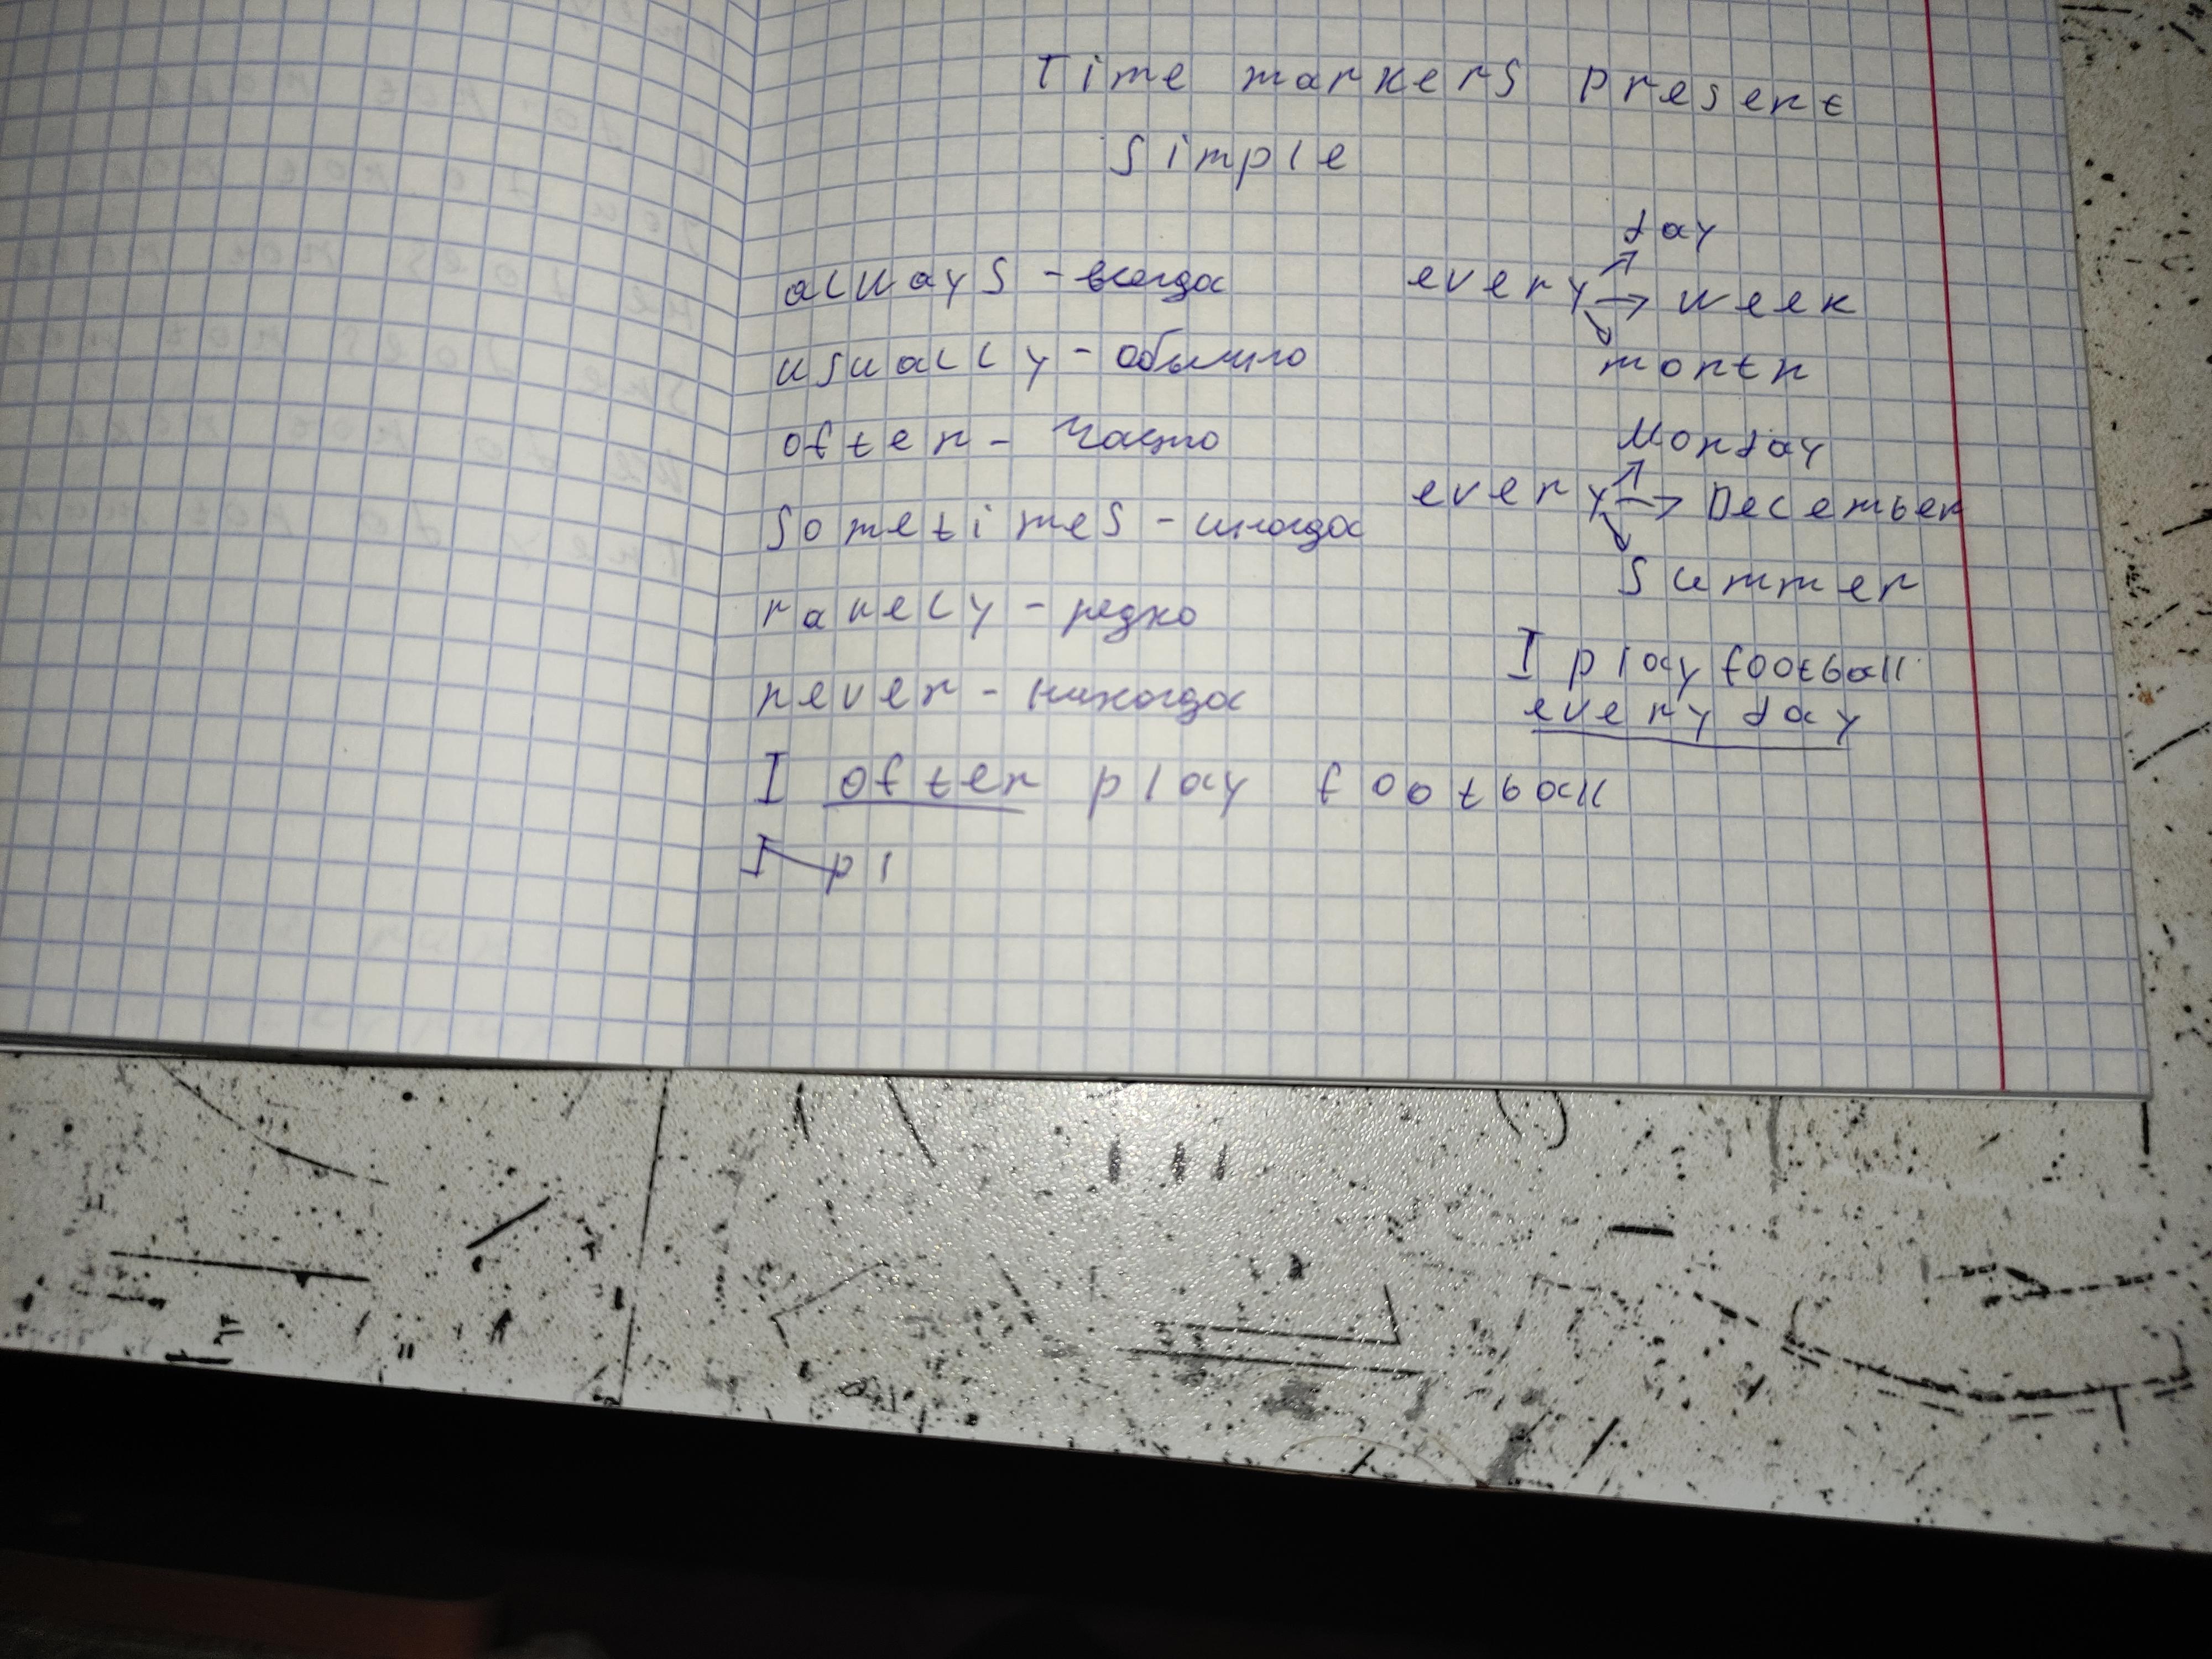 Time markers present
simple
always - всегда
usually - обычно
often - часто
sometimes - иногда
rarely - редко
never - никогда
I often play football
I pl
day
every → week
month
Monday
every → December
Summer
I play football
every day